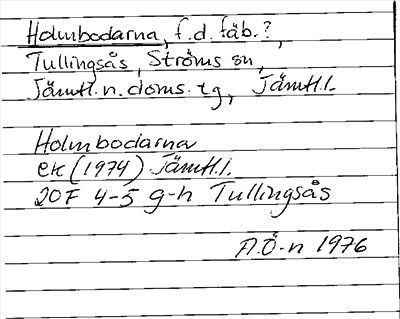 Holmbodarna, f.d. fäb.?,
Tullingsås, Ströms sn,
Jämtl. n. doms. tg, Jämtl. l.
Holmbodarna
ek (1974) Jämtl. l.
20F 4-5 g-h Tullingsås
A.Ö-n 1976